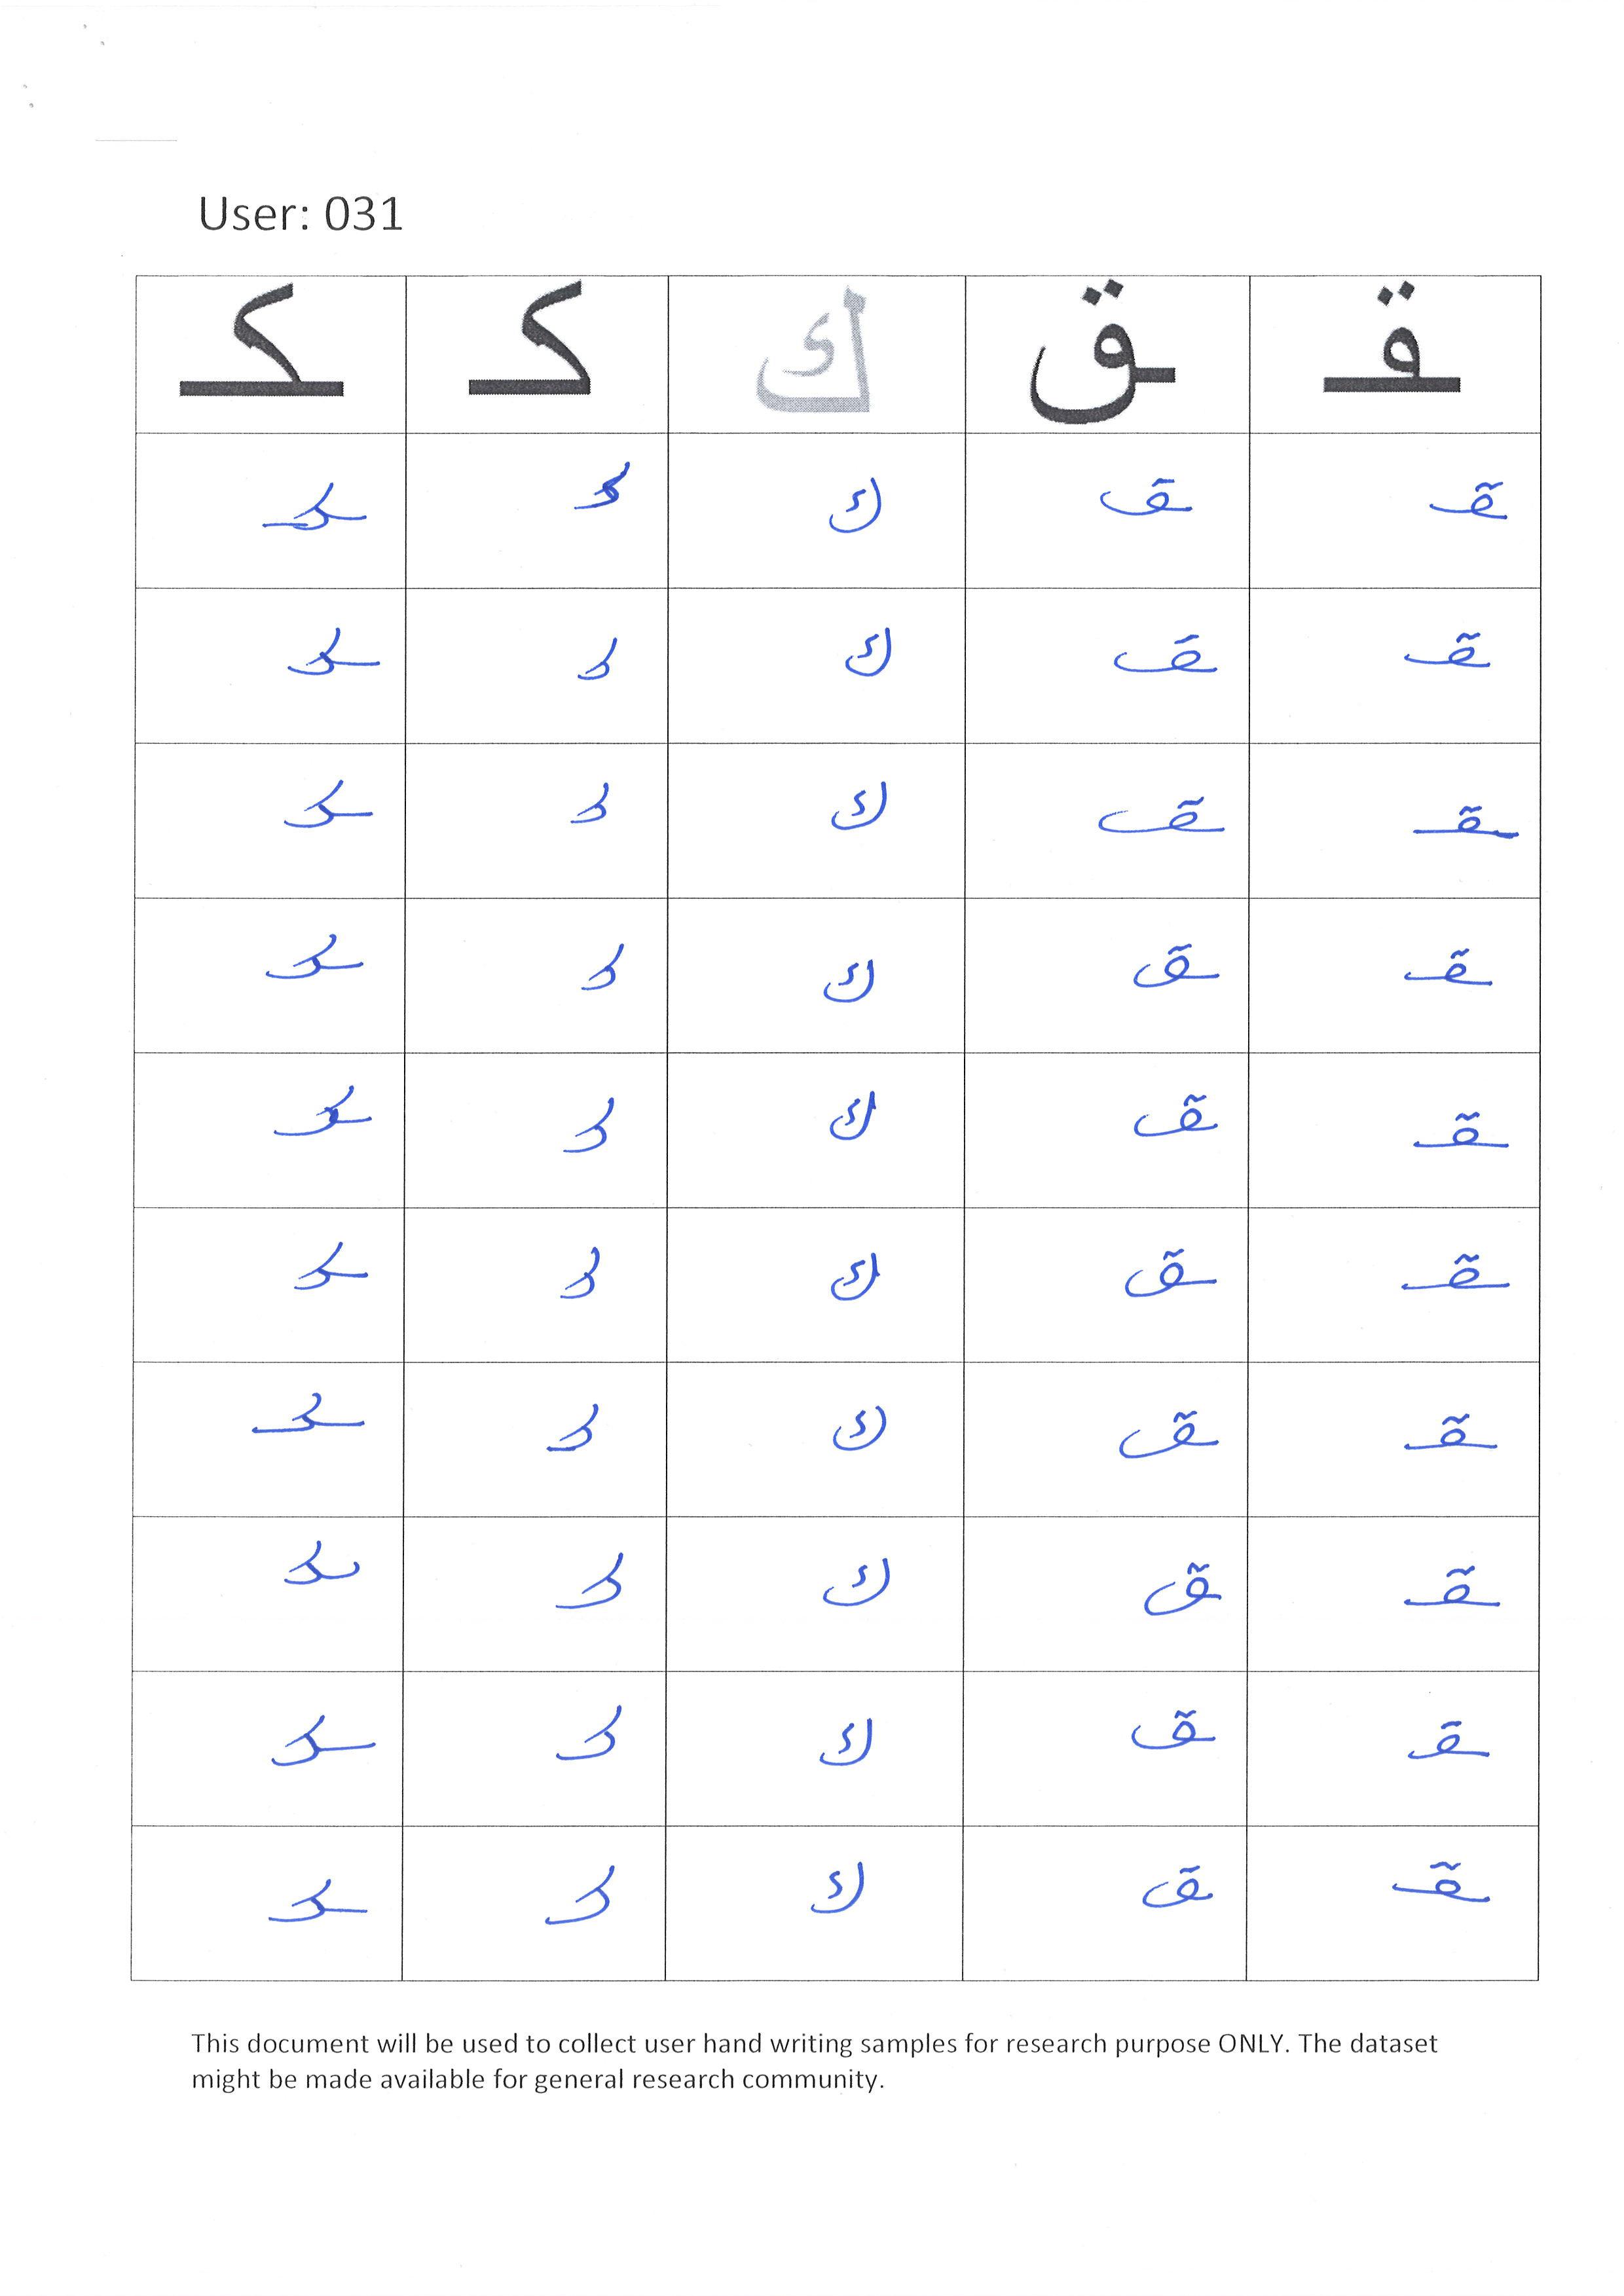 User: 031
ـقـ ـق ك كـ ـكـ
ـقـ ـق ك كـ ـكـ
ـقـ ـق ك كـ ـكـ
ـقـ ـق ك كـ ـكـ
ـقـ ـق ك كـ ـكـ
ـقـ ـق ك كـ ـكـ
ـقـ ـق ك كـ ـكـ
ـقـ ـق ك كـ ـكـ
ـقـ ـق ك كـ ـكـ
ـقـ ـق ك كـ ـكـ
ـقـ ـق ك كـ ـكـ
This document will be used to collect user hand writing samples for research purpose ONLY. The dataset
might be made available for general research community.